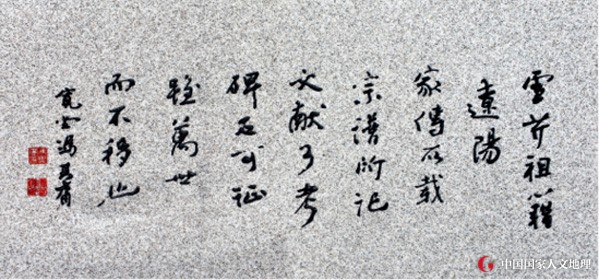 雪芹祖籍
遼陽
家傳所載
宗譜所記
文献可考
碑石可証
雖萬世
而不移也
寬堂馮其庸
中国国家人文地理